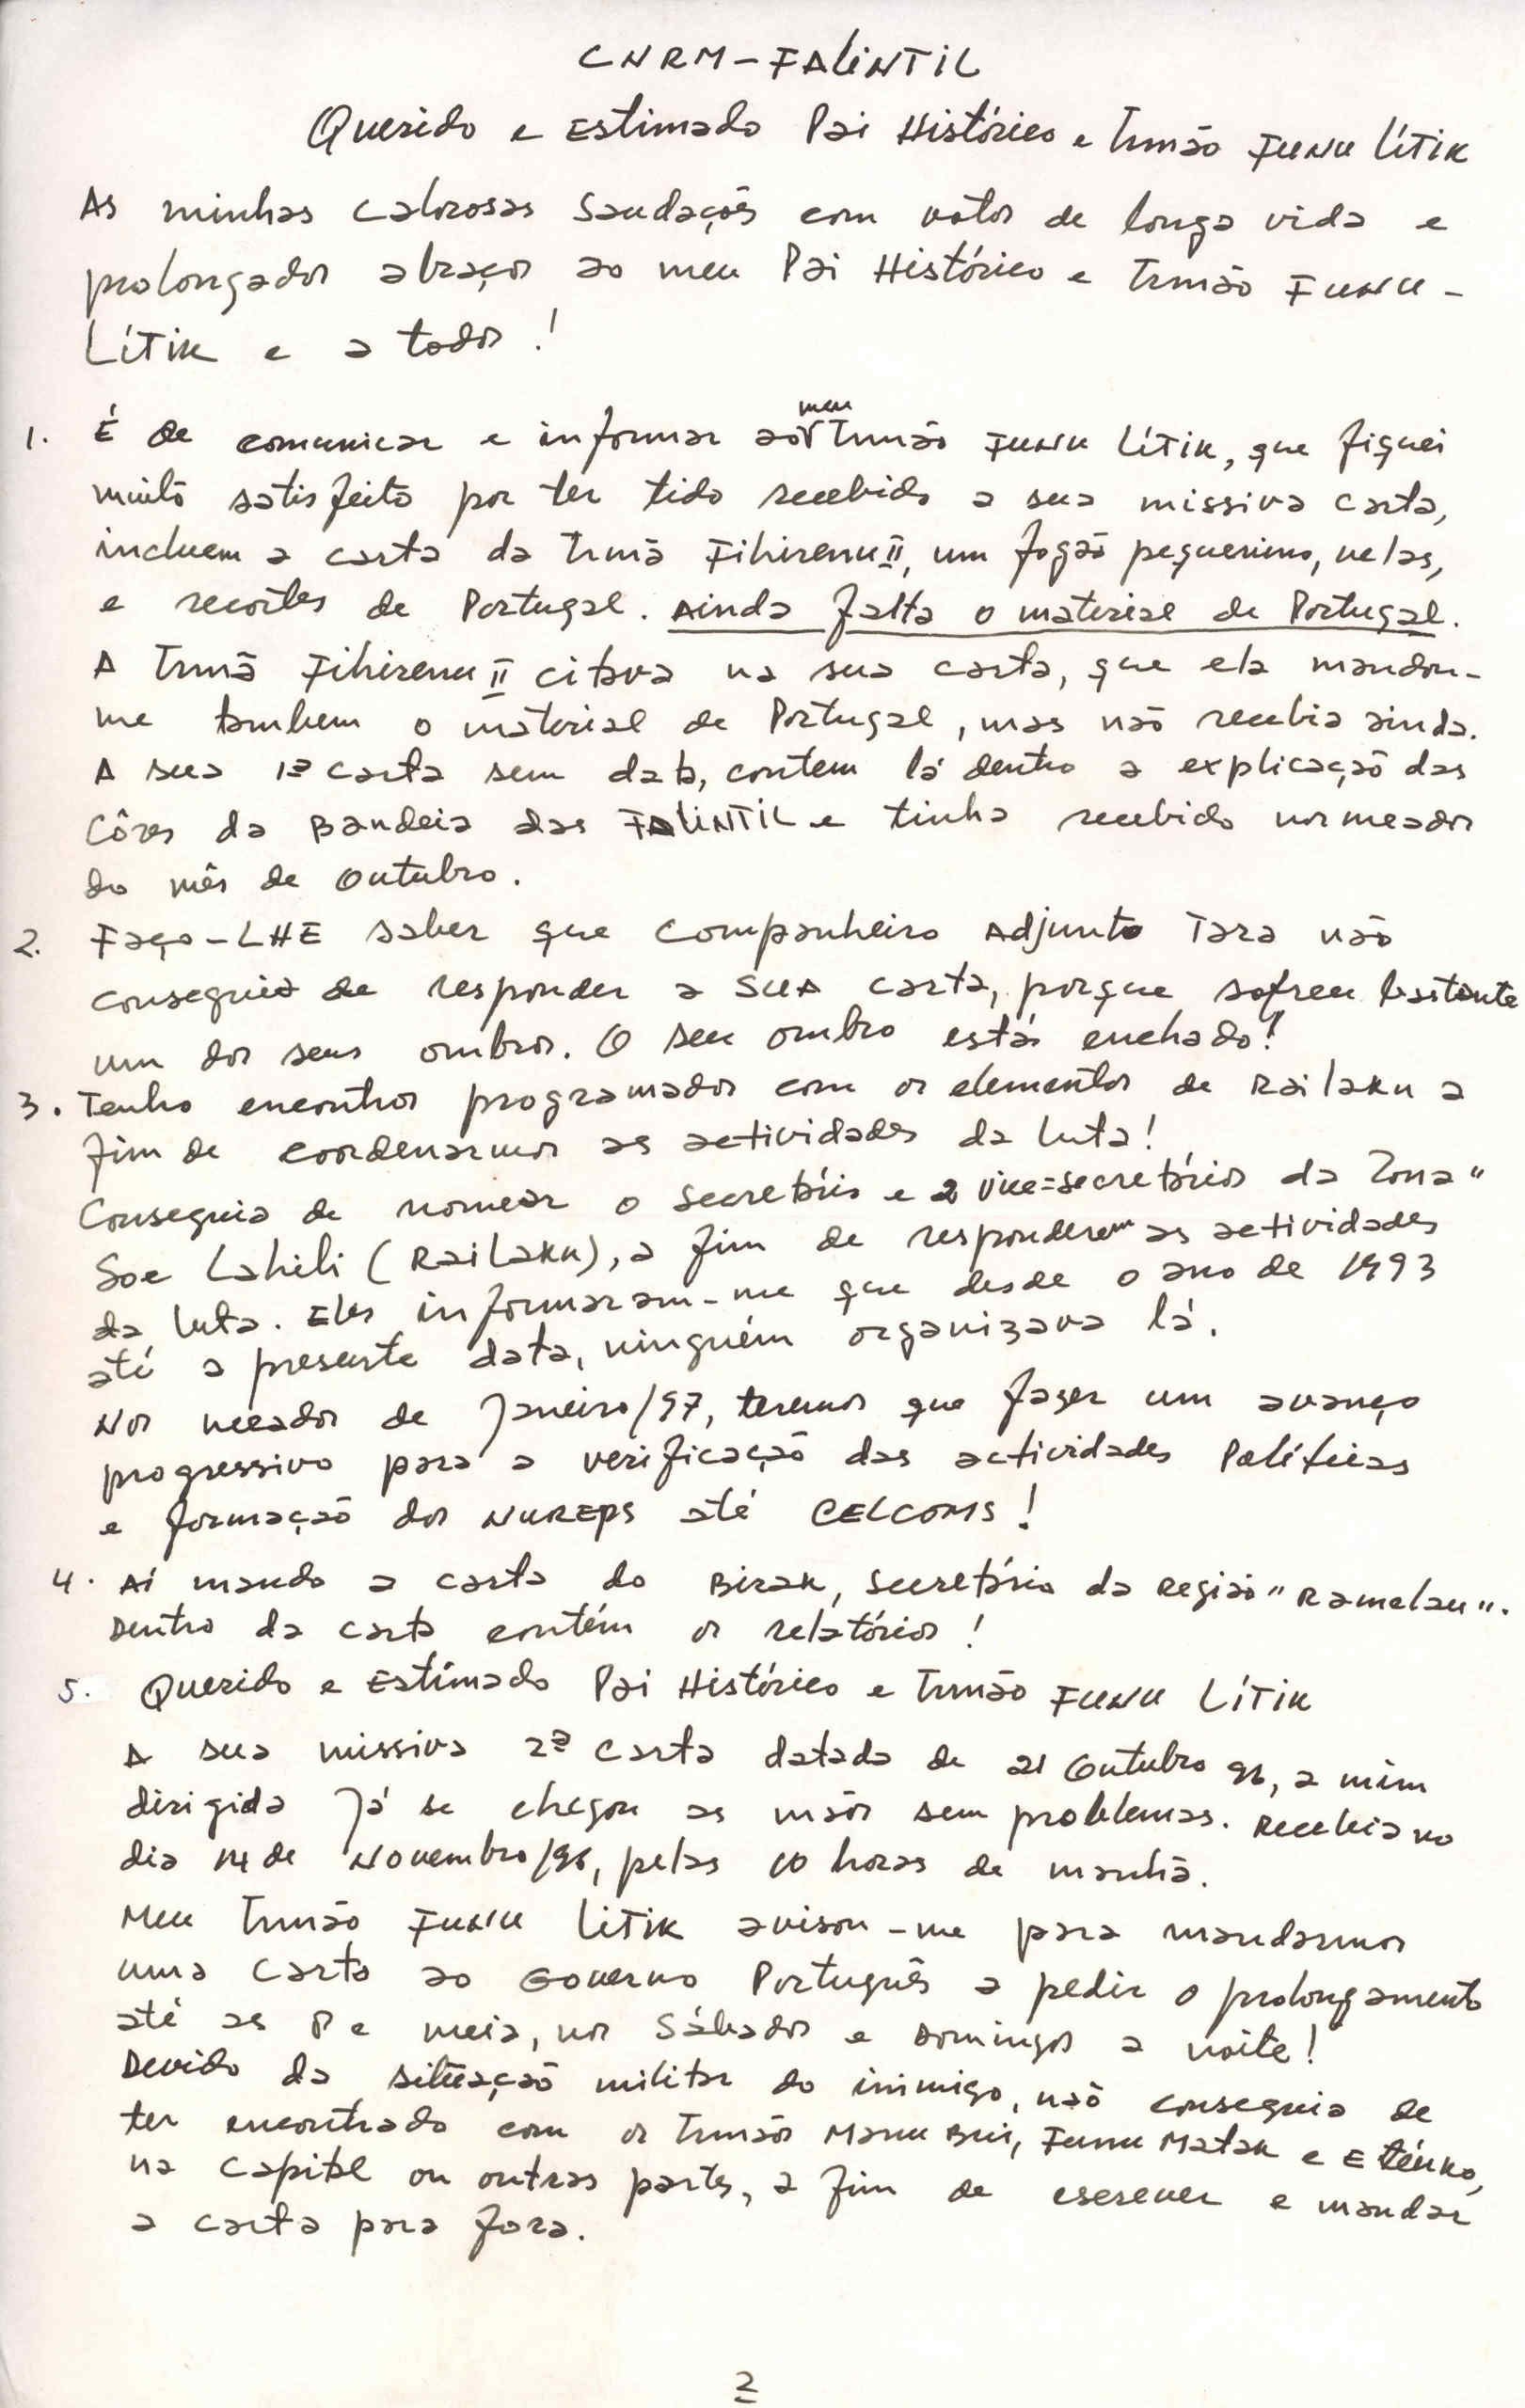 CNRM - FALiNTiL
Querido e Estimado Pai Histórico e Irmão FUNU LíTiK
As minhas calorosas saudações com votos de longa vida e
prolongados abraços ao meu Pai Histórico e Irmão FUNU -
LíTiK e a todos !
1. É de comunicar e informar ao meu Irmão FUNU LíTiK, que fiquei
muito satisfeito por ter tido recebido a sua missiva carta,
incluem a carta da Irmã Fihirenu II, um fogão pequenino, velas,
e recortes de Portugal. Ainda falta o material de Portugal.
A Irmã Fihirenu II citava na sua carta, que ela mandou-
me tambem o material de Portugal, mas não recebia ainda.
A sua 1ª carta sem data, contem lá dentro a explicação das
Côres da Bandeia das FALiNTiL e tinha recebido nos meados
do mês de Outubro.
2. Faço-LHE saber que Companheiro Adjunto Tara não
conseguia de responder a SUA carta, porque sofreu bastante
um dos seus ombros. O seu ombro está enchado!
3. Tenho encontros programados com os elementos de Railaku a
fim de coordenarmos as actividades da luta!
Conseguia de nomear o Secretário e 2 vice=secretários da Zona "
Soe Laheli (Railaku), a fim de responderem as actividades
da luta. Eles informaram-me que desde o ano de 1993
até a presente data, ninguém organizava lá.
Nos meados de Janeiro/97, teremos que fazer um avanço
progressivo para a verificação das actividades Políticas
e formação dos NUREPS até CELCOMS !
4. Aí mando a carta do Birak, Secretário da Região "Ramelau".
Dentro da carta contém os relatórios !
5. Querido e Estimado Pai Histórico e Irmão FUNU LíTiK
A sua missiva 2ª carta datada de 21 Outubro 96, a mim
dirigida já se chegou as mãos sem problemas. Recebia no
dia 14 de Novembro/96, pelas 10 horas de manhã.
Meu Irmão FUNU LiTiK avisou-me para mandarmos
uma carta ao Governo Português a pedir o prolongamento
até as 8 e meia, nos Sábados e Domingos a noite!
Devido da situação militar do inimigo, não conseguia de
ter encontrado com os Irmãos Manu Bui, Funu Matak e Eténko,
na capital ou outras partes, a fim de escrever e mandar
a carta para fora.
2